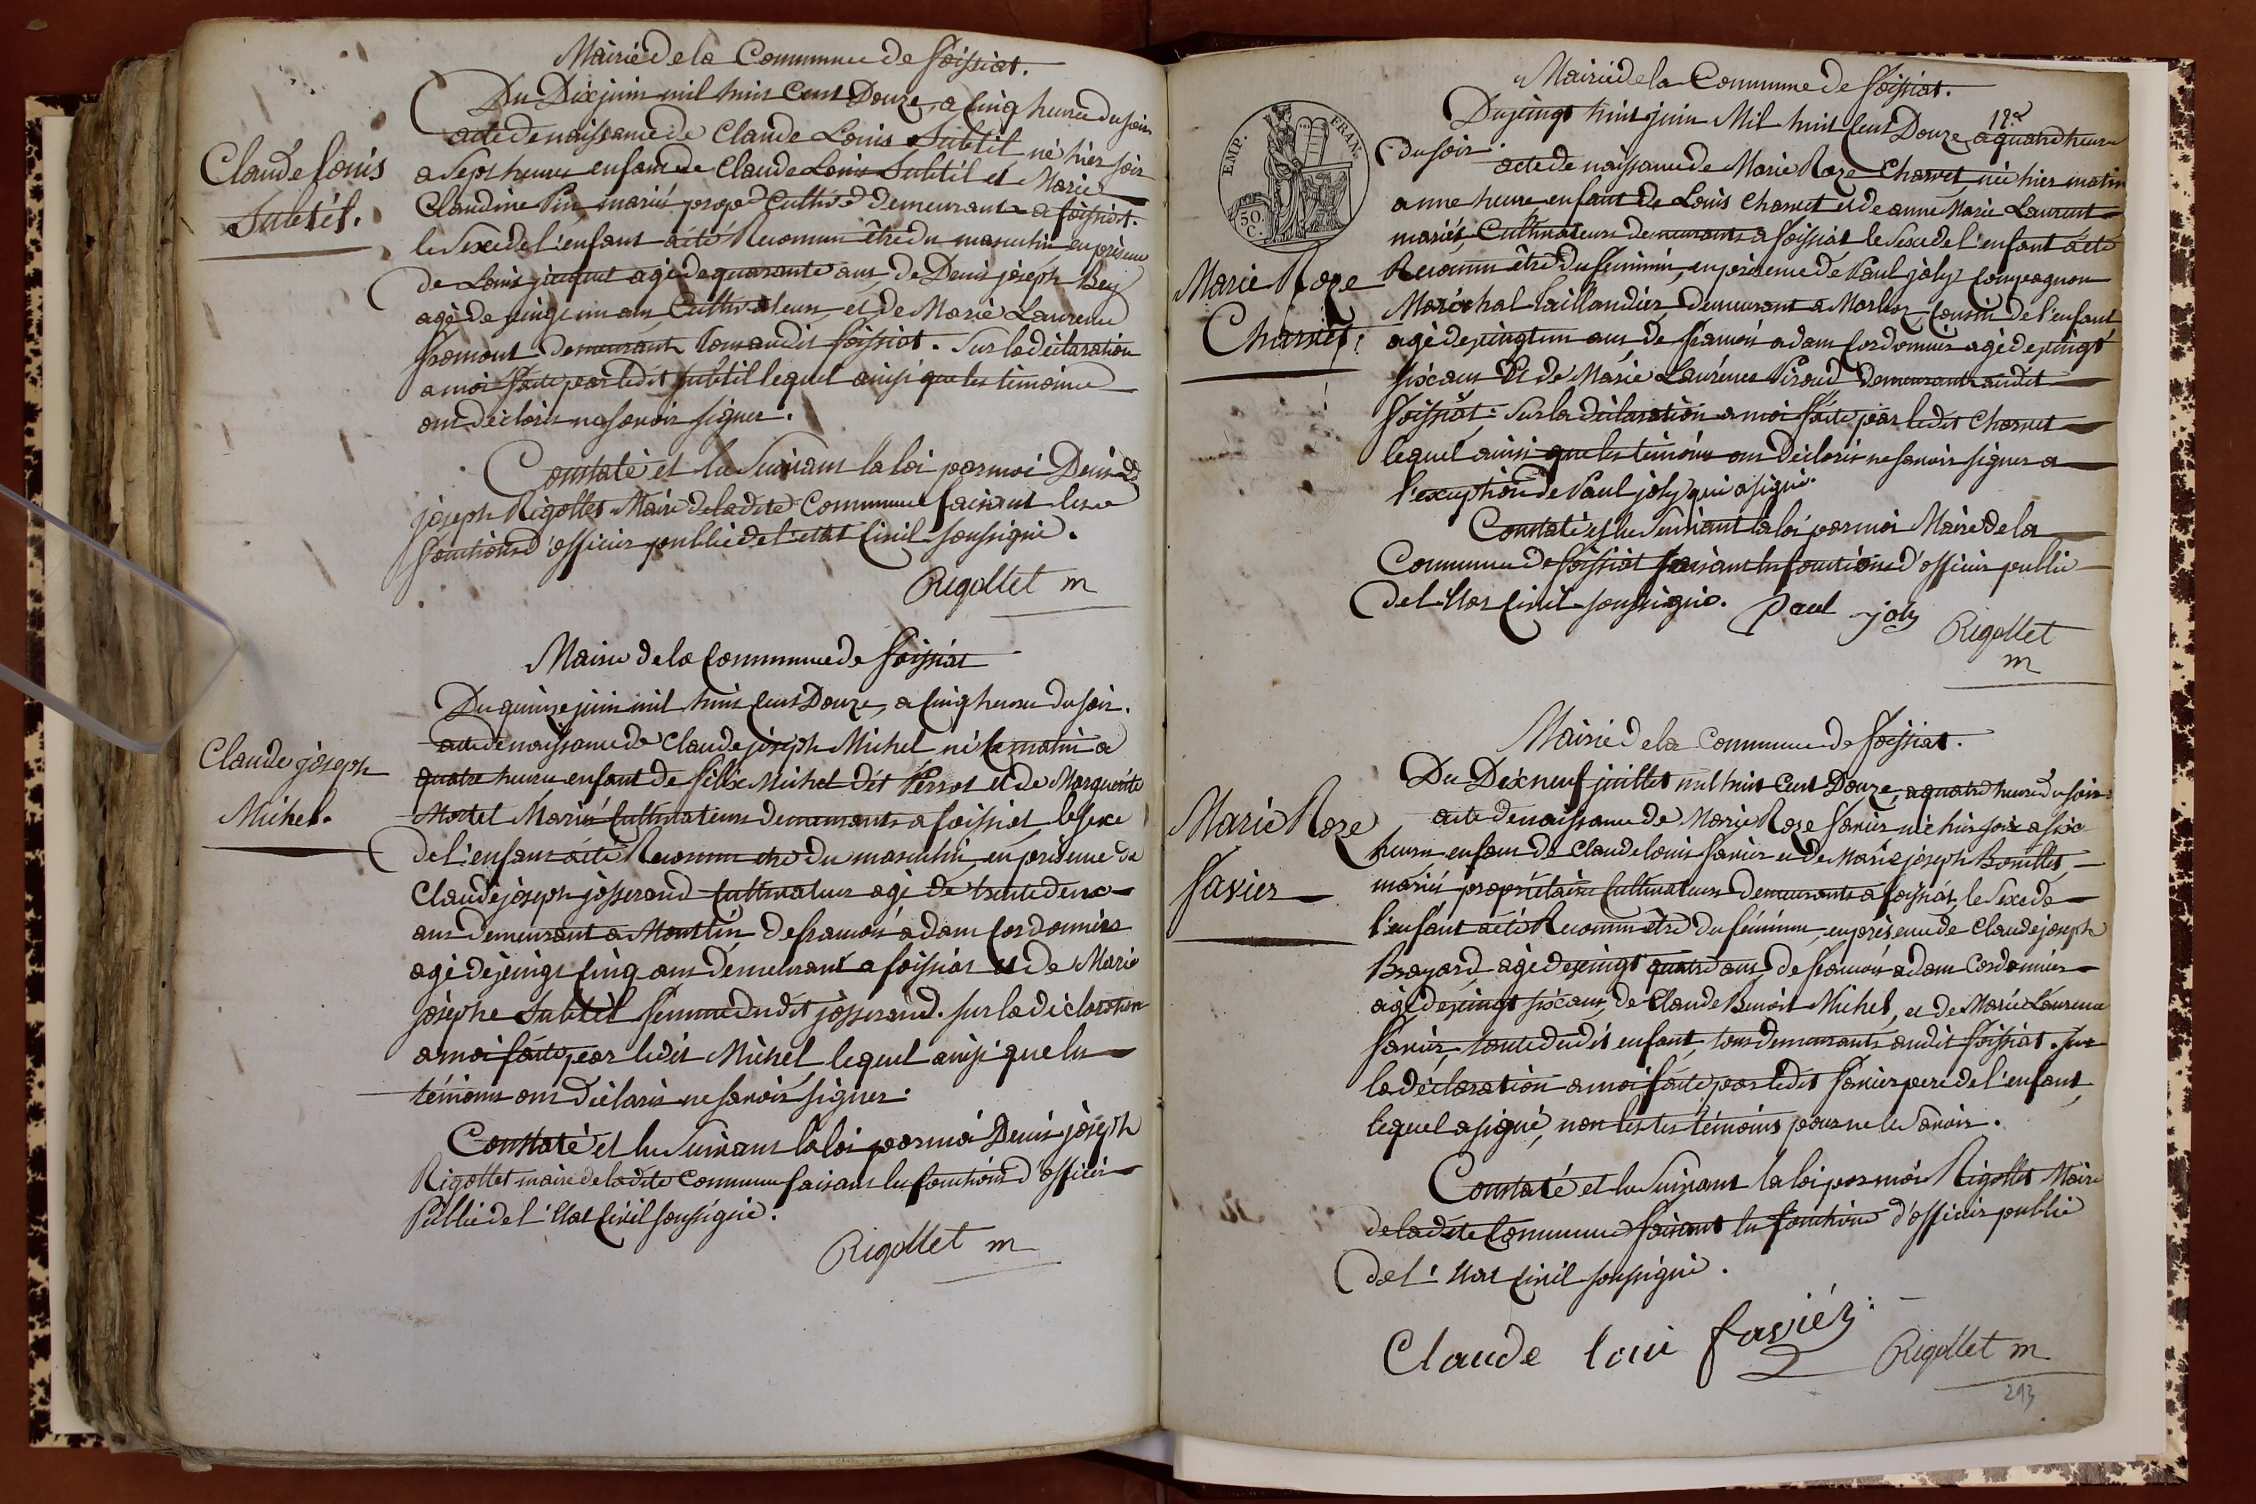 Mairie de la Commune de foissiat.
Du Dix juin mil huit Cent Douze, a cinq heures du soir
acte de naissance de Claude Louis Subtil né hier soir
a Sept heures enfant de Claude Louis Subtil et Marie
Claudine Pin mariés prop.es Cultiv.s demeurant a foissiat.
le Sexe de l'enfant a été Reconnu être du masculin en présence
de Louis jacquet agé de quarante ans, de Denis joseph Bey
agé de vingt un ans Cultivateurs, et de Marie Laurence
fromont demeurants tous audit foissiat. Sur la déclaration
a moi faite par ledit Subtil lequel ainsi que les témoins
ont déclaré ne savoir signer.
Constaté et lu Suivant la loi par moi Denis
joseph Rigollet Maire de ladite Commune faisant les
fonctions d'officier public de l'etat Civil soussigné.
Rigollet m
Claude Louis
Subtil.
Mairie de la Commune de foissiat
Du quinze juin mil huit Cent Douze, a cinq heures du soir.
acte de naissance de Claude joseph Michel né ce matin a
quatre heures enfant de félix Michel dit Perrot et de Marguerite
Mortel Mariés Cultivateurs demeurants a foissiat le sexe
de l'enfant a été Reconnu etre du masculin, en présence de
Claude joseph josserand Cultivateur agé de trente deux
ans demeurant a Montlin de francois adam Cordonnier
agé de vingt cinq ans demeurant a foissiat et de Marie
josephe Subtil femme dudit josserand. sur la déclaration
a moi faite par ledit Michel, lequel ainsi que les
témoins ont Déclaré ne savoir signer.
Constaté et lu Suivant la loi par moi Denis joseph
Rigollet maire de ladite Commune faisant les fonctions d'officier
Public de l'Etat Civil soussigné.
Rigollet m
Claude joseph
Michel.
Mairie de la Commune de foissiat.
Du vingt huit juin Mil huit Cent Douze a quatre heures
du soir.
acte de naissance de Marie Roze Charvet, née hier matin
a une heure enfant de Louis Charvet et de anne Marie Laurent
mariés, Cultivateurs demeurants a foissiat le Sexe de l'enfant a été
Reconnu être du féminin, en présence de Paul joly Compagnon
Maréchal taillandier demeurant a Marboz, Cousin de l'enfant
agé de vingt un ans, de francois adam Cordonnier agé de vingt
six ans Et de Marie Laurence Piroud demeurants audit
foissiat. Sur la déclaration a moi faite par ledit Charvet
lequel ainsi que les témoins ont Déclaré ne savoir signer a
l'exception de Paul joly qui a signé.
Constaté et lu Suivant la loi par moi Maire de la
Commune de foissiat faisant les fonctions d'officier public
de l'Etat Civil soussigné.
Paul joly
Rigollet
m
EMP. FRAN.
50.
C.
Marie Roze
Charvet.
Mairie de la Commune de foissiat.
Du Dix neuf juillet mil huit Cent Douze, a quatre heures du soir.
acte de naissance de Marie Roze favier née hier soir a six
heures, enfant de Claude louis favier et de Marie joseph Bouillet,
mariés, propriétaires Cultivateurs demeurants a foissiat, le Sexe de
l'enfant a été Reconnu être du féminin, en présence de Claude joseph
Brayard agé de vingt quatre ans, de francois adam Cordonnier
agé de vingt six ans, de Claude Benoit Michel, et de Marie Laurence
favier, tante dudit enfant, tous demeurants audit foissiat. sur
la déclaration a moi faite par ledit favier pere de l'enfant,
lequel a signé, non les les témoins pour ne le Savoir.
Constaté et lu Suivant la loi par moi Rigollet Maire
de ladite Commune faisant les fonctions d'officier public
de l'Etat Civil soussigné.
Claude loui favier
Rigollet m
293
Marie Roze
favier